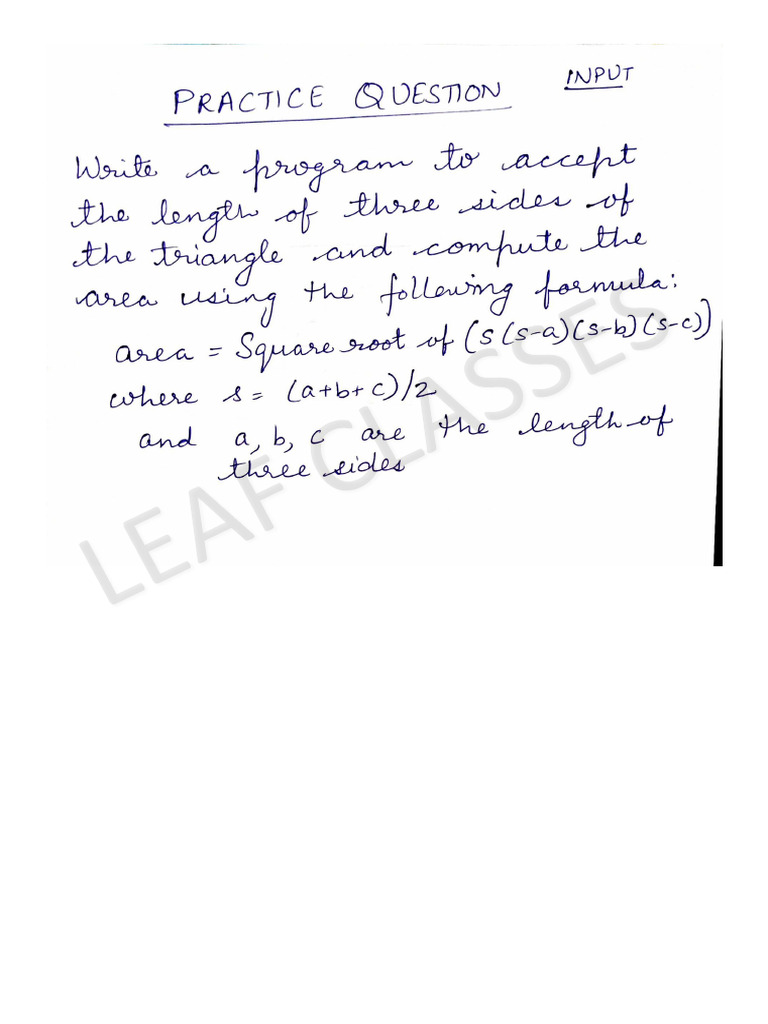 PRACTICE QUESTION INPUT
Write a program to accept
the length of three sides of
the triangle and compute the
area using the following formula:
area = Square root of (s(s-a)(s-b)(s-c))
where s = (a+b+c)/2
and a, b, c are the length of
three sides
LEAF CLASSES